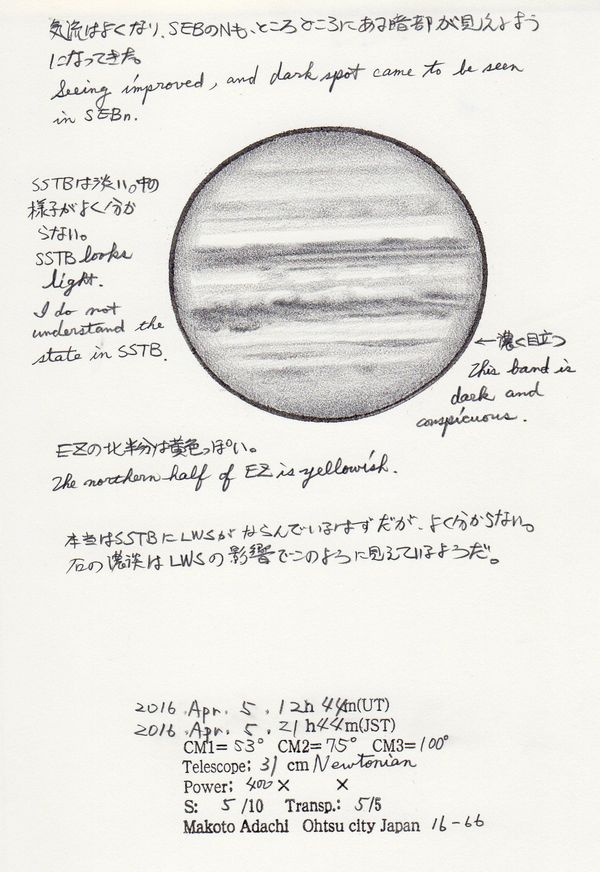 気流はよくなり、SEBのNも、ところどころにある暗部が見えるよう
になってきた。
Seeing improved, and dark spot came to be seen
in SEBn.
SSTBは淡い。中の
様子がよく分か
らない。
SSTB looks
light.
I do not
understand the
state in SSTB.
←濃く目立つ
This band is
dark and
conspicuous.
EZの北半分は黄色っぽい。
The northern half of EZ is yellowish.
本当はSSTBにLWSがならんでいるはずだが、よく分からない。
右の濃淡はLWSの影響でこのように見えているようだ。
2016. Apr. 5. 12h 44m(UT)
2016. Apr. 5. 21h44m(JST)
CM1= 53° CM2= 75° CM3= 100°
Telescope; 31 cm Newtonian
Power; 400× ×
S: 5/10 Transp.: 5/5
Makoto Adachi Ohtsu city Japan 16-66